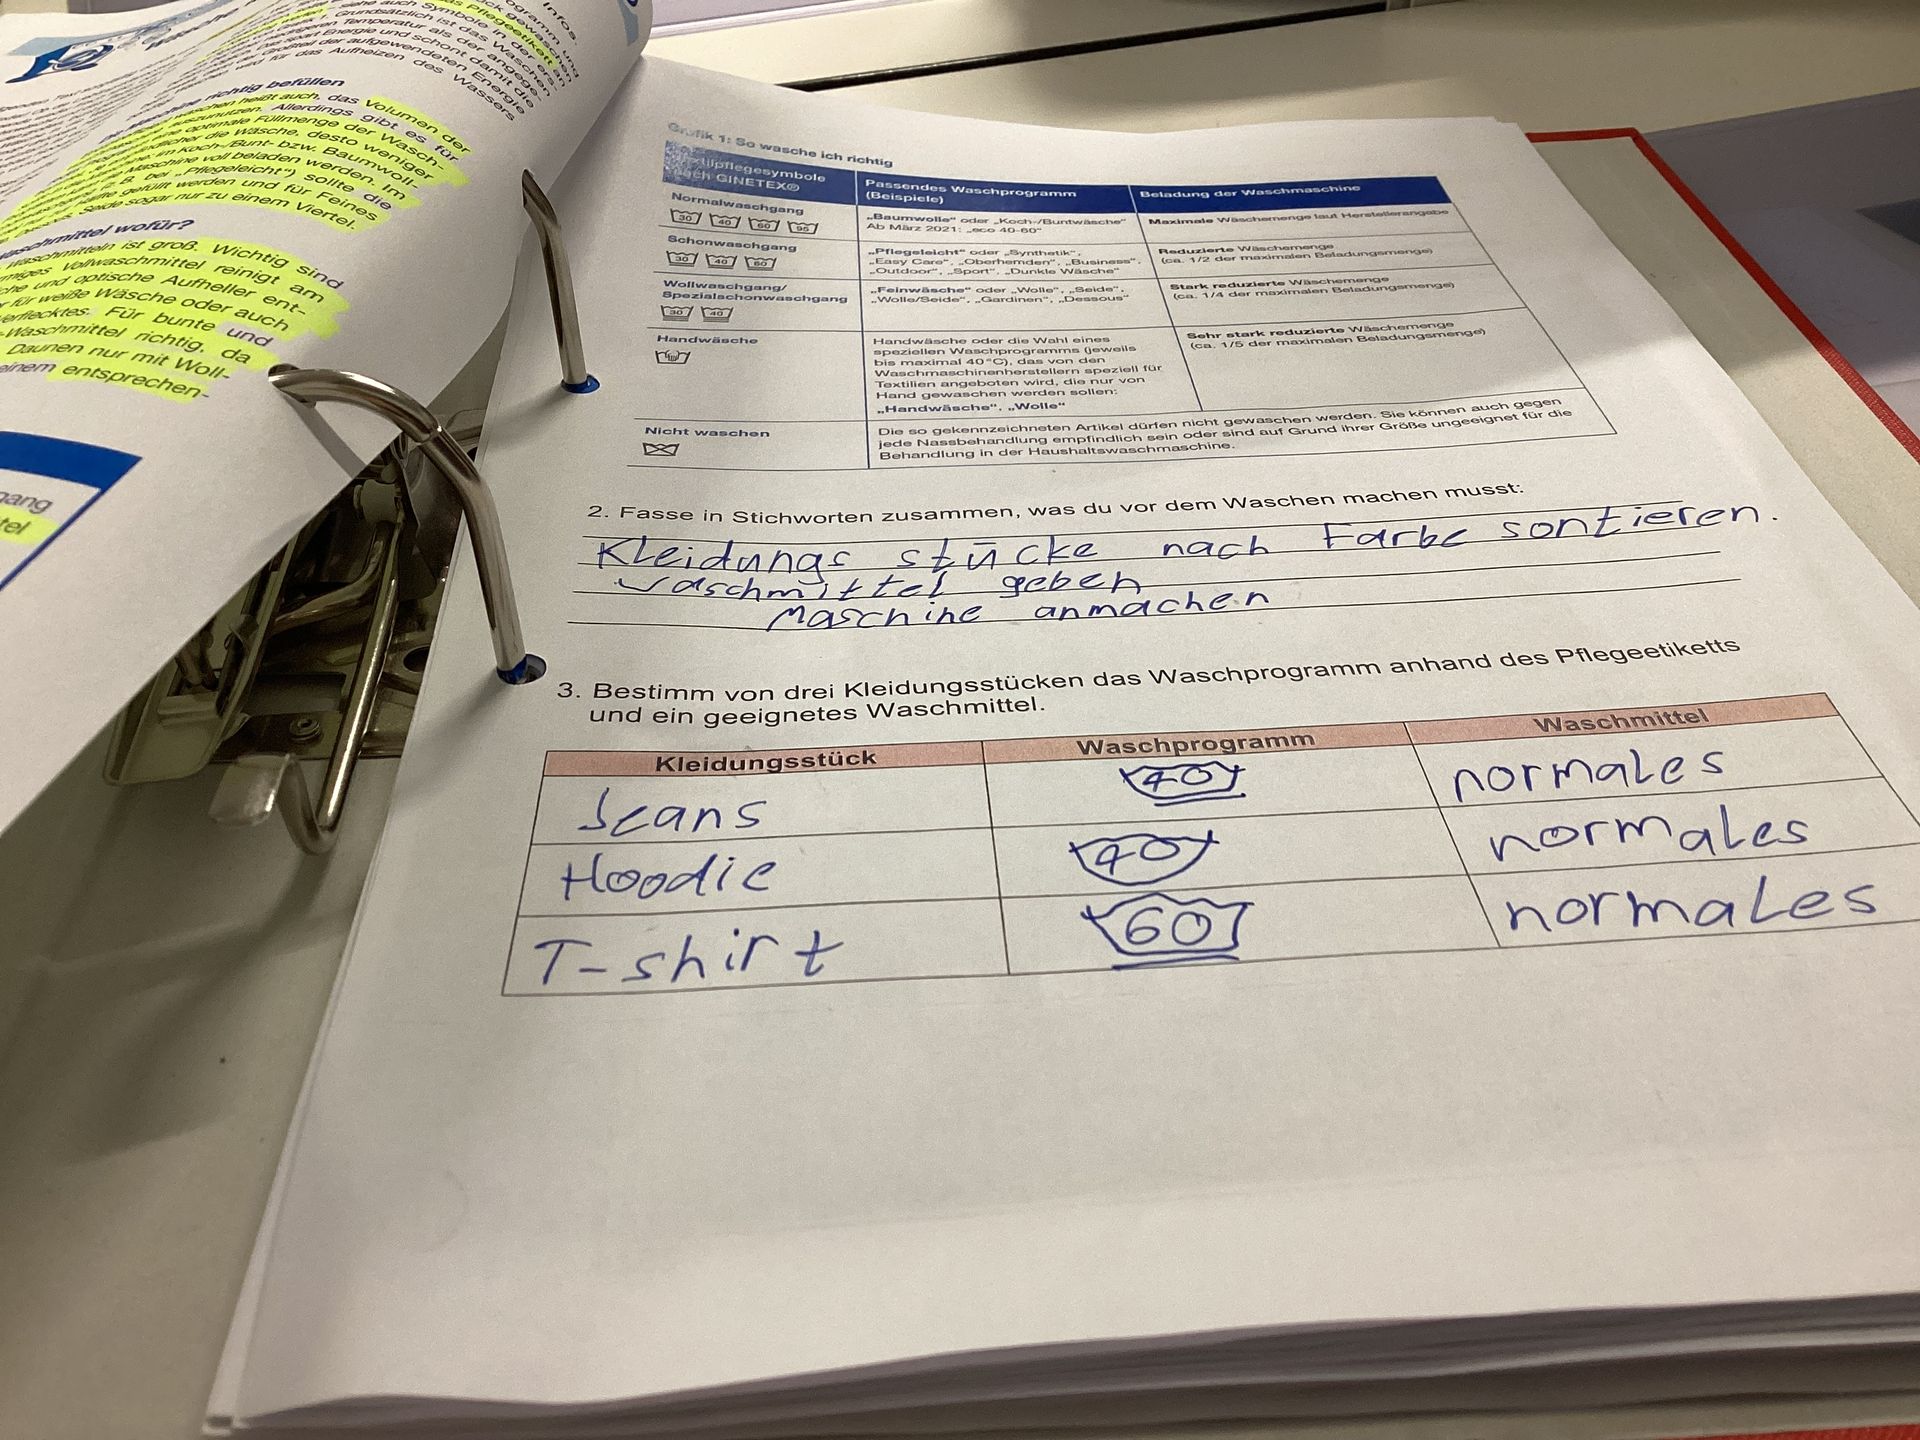 Infos.
das Pflegeetikett an
siehe auch Symbole in der
Grundsätzlich ist das Waschen
Temperatur als der angege-
spart Energie und schont damit die
Großteil der aufgewendeten Energie
wird für das Aufheizen des Wassers
richtig befüllen
waschen heißt auch, das Volumen der
auszunutzen. Allerdings gibt es für
eine optimale Füllmenge der Wasch-
die Wäsche, desto weniger
im Koch-/Bunt- bzw. Baumwoll-
Maschine voll beladen werden. Im
(z. B. bei „Pflegeleicht“) sollte die
gefüllt werden und für Feines
Seide sogar nur zu einem Viertel.
waschmittel wofür?
Waschmitteln ist groß. Wichtig sind
Vollwaschmittel reinigt am
und optische Aufheller ent-
für weiße Wäsche oder auch
verflecktes. Für bunte und
Waschmittel richtig, da
Daunen nur mit Woll-
einem entsprechen-
gang
tel
Grafik 1: So wasche ich richtig
Textilpflegesymbole
nach GINETEX®
Passendes Waschprogramm
(Beispiele)
Beladung der Waschmaschine
Normalwaschgang
30 40 60 95
„Baumwolle“ oder „Koch-/Buntwäsche“
Ab März 2021: „eco 40-60“
Maximale Wäschemenge laut Herstellerangabe
Schonwaschgang
30 40 60
„Pflegeleicht“ oder „Synthetik“,
„Easy Care“, „Oberhemden“, „Business“,
„Outdoor“, „Sport“, „Dunkle Wäsche“
Reduzierte Wäschemenge
(ca. 1/2 der maximalen Beladungsmenge)
Wollwaschgang/
Spezialschonwaschgang
30 40
„Feinwäsche“ oder „Wolle“, „Seide“,
„Wolle/Seide“, „Gardinen“, „Dessous“
Stark reduzierte Wäschemenge
(ca. 1/4 der maximalen Beladungsmenge)
Handwäsche
Handwäsche oder die Wahl eines
speziellen Waschprogramms (jeweils
bis maximal 40 °C), das von den
Waschmaschinenherstellern speziell für
Textilien angeboten wird, die nur von
Hand gewaschen werden sollen:
„Handwäsche“, „Wolle“
Sehr stark reduzierte Wäschemenge
(ca. 1/5 der maximalen Beladungsmenge)
Nicht waschen
Die so gekennzeichneten Artikel dürfen nicht gewaschen werden. Sie können auch gegen
jede Nassbehandlung empfindlich sein oder sind auf Grund ihrer Größe ungeeignet für die
Behandlung in der Haushaltswaschmaschine.
2. Fasse in Stichworten zusammen, was du vor dem Waschen machen musst:
Kleidungs stücke nach Farbe sontieren.
waschmittel geben
Maschine anmachen
3. Bestimm von drei Kleidungsstücken das Waschprogramm anhand des Pflegeetiketts
und ein geeignetes Waschmittel.
Kleidungsstück Waschprogramm Waschmittel
Jeans 40 normales
Hoodie 40 normales
T-shirt 60 normales